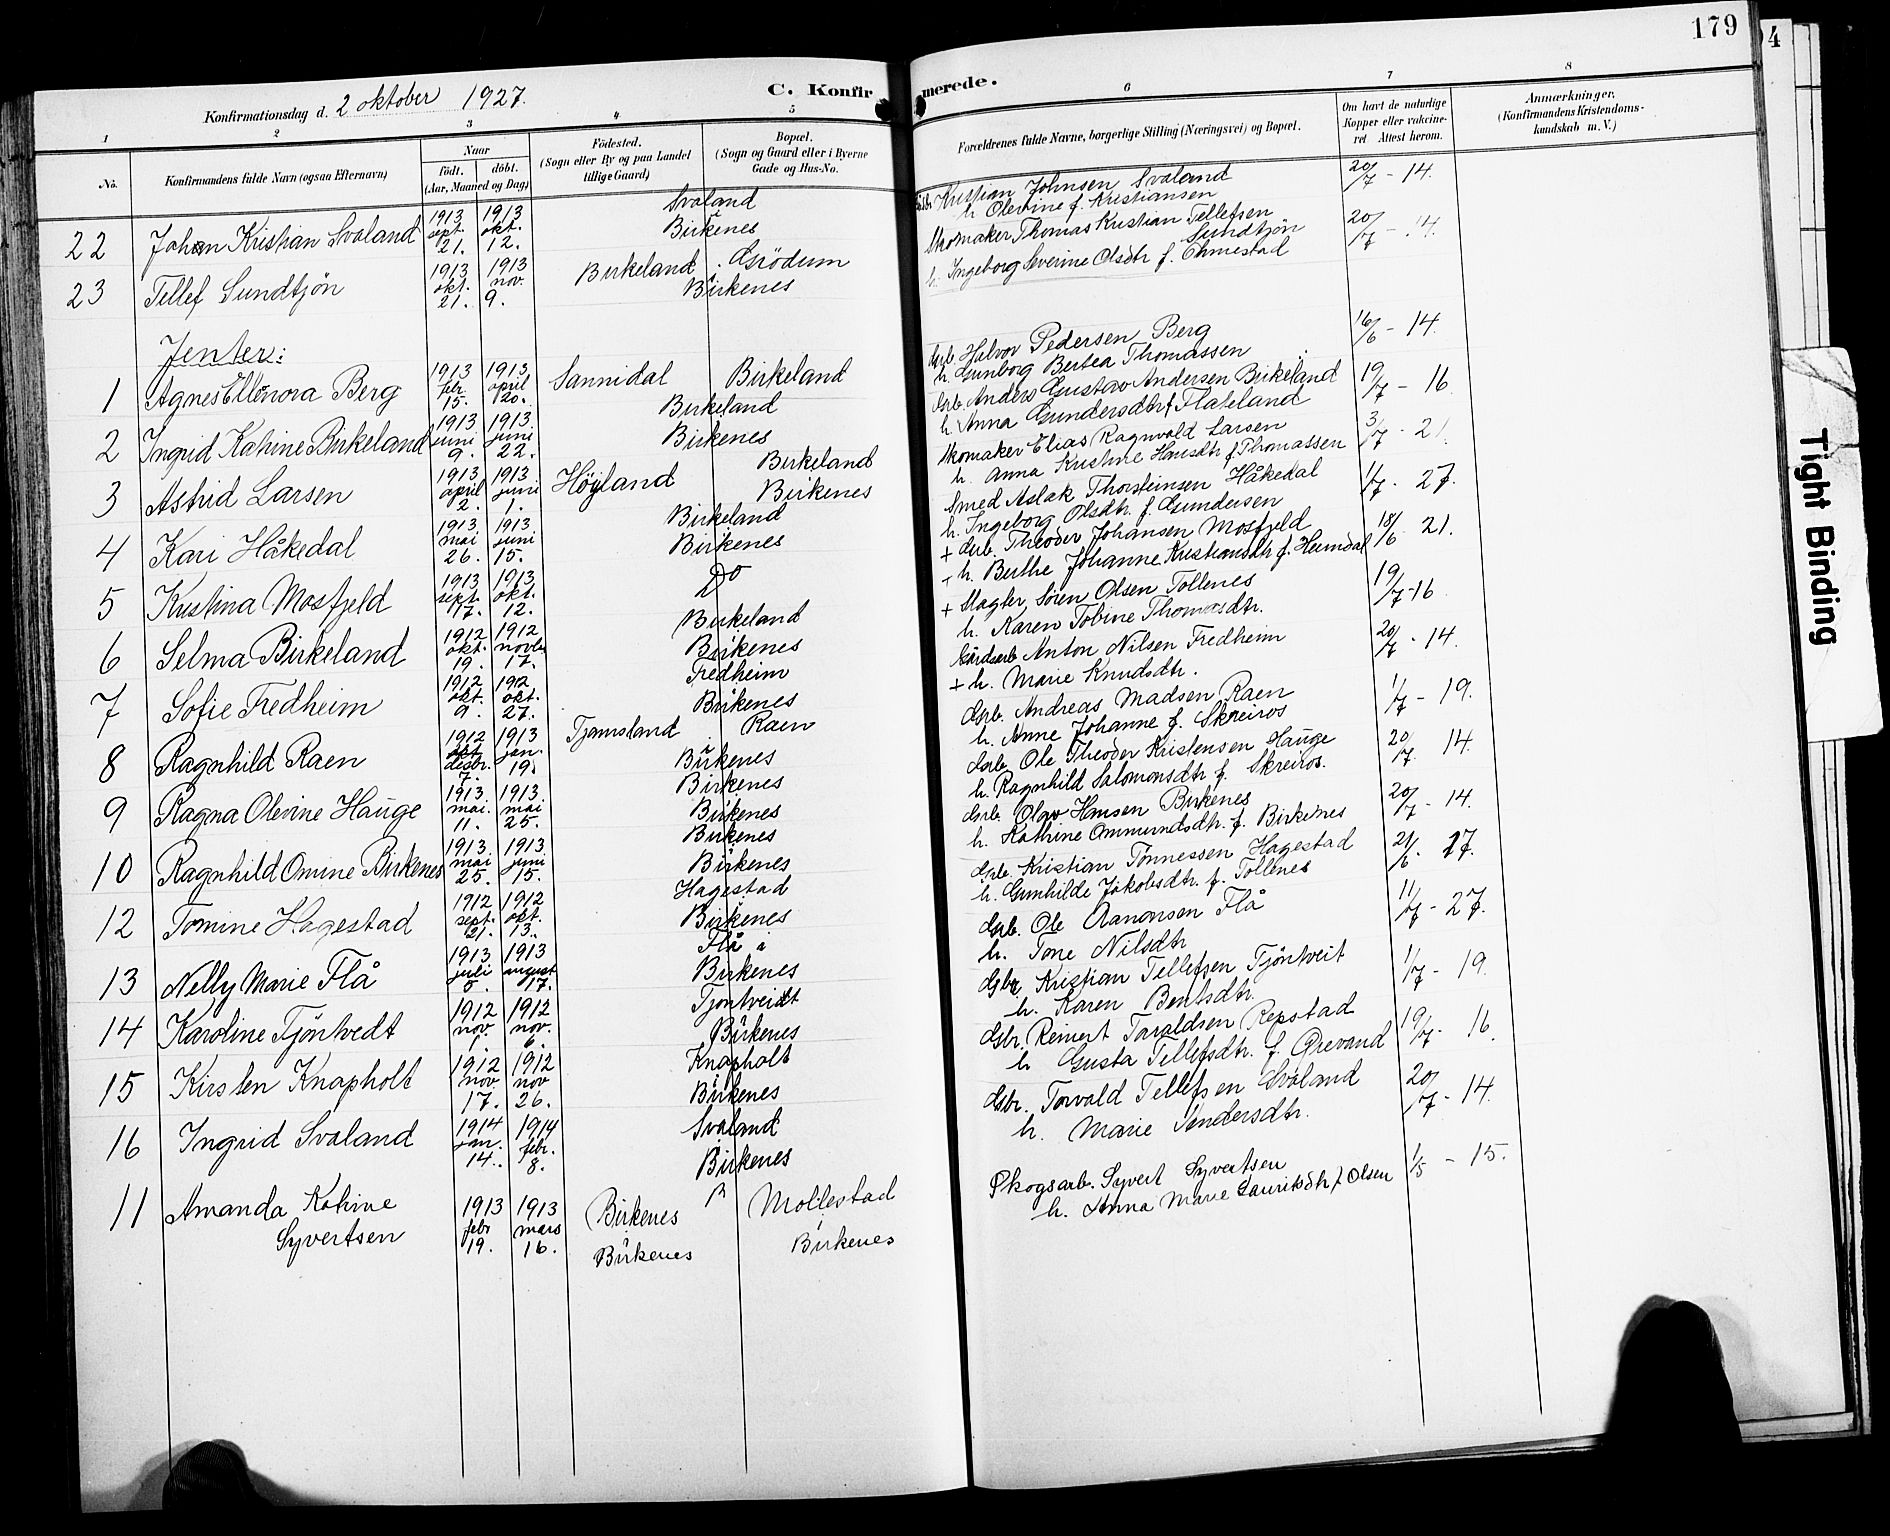 179
4
Konfirmationsdag d. 2 oktober 1927.
C. Konfirmerede.
1 2 3 4 5 6 7 8
No.
Konfirmandens fulde Navn (ogsaa Efternavn)
Naar
født. døbt.
(Aar, Maaned og Dag)
Födested.
(Sogn eller By og paa Landet
tillige Gaard)
Bopæl.
(Sogn og Gaard eller i Byerne
Gade og Hus-No.
Forældrenes fulde Navne, borgerlige Stilling (Næringsvei) og Bopæl.
Om havt de naturlige
Kopper eller vaccine-
ret Attest herom.
Anmærkninger,
(Konfirmandens Kristendoms-
kundskab m. V.)
22 Johan Kristian Svaland 1913 sept. 21. 1913 okt. 12. Svaland Birkenes Kristian Johnsen Svaland 20/7 - 14.
h. Olevine f. Kristiansen
23 Tellef Sundtjön 1913 okt. 21. 1913 nov. 9. Birkeland Grödum Birkenes Skomaker Thomas Kristian Tellefsen Sundtjön 20/7 - 14.
h. Ingeborg Severine Olsdtr f. Ommestad
Jenter:
1 Agnes Ellenora Berg 1913 febr. 15. 1913 april 20. Sannidal Birkeland Arb. Halvor Pedersen Berg 16/6 - 14.
h. Gunborg Bertea Thomassen
2 Ingrid Katrine Birkeland 1913 juni 9. 1913 juni 22. Birkeland Birkenes Gsb. Anders Gustav Andersen Birkeland 19/7 - 16
h. Anna Gundersdtr f Flateland
3 Astrid Larsen 1913 april 2. 1913 juni 1. Höyland Birkeland Birkenes Skomaker Elias Ragnvald Larsen 3/7 - 21.
h. Anna Kristine Hansdtr f Thomassen
4 Kari Håkedal 1913 mai 26. 1913 juni 15. Birkeland Birkenes Smed Aslak Thorsteinsen Håkedal 1/7 - 27.
h. Ingeborg Olsdtr. f. Gundersen
5 Kristina Mosfjeld 1913 sept. 17. 1913 okt. 12. Do + Arb. Theodor Johansen Mosfjeld 18/6 - 21.
+ h. Berthe Johanne Kristiansdtr f. Heimdal
6 Selma Birkeland 1912 okt. 19. 1912 novbr 17. Birkeland Birkenes + Slagter Sören Olsen Tollenes 19/7-16
h. Karen Tobine Thomasdtr.
7 Sofie Fredheim 1912 okt. 9. 192 okt. 27. Fredheim Birkenes Gårdsarb Anton Nilsen Fredheim 20/7 - 14.
+ h. Marie Knudsdtr.
8 Ragnhild Raen 1912 desbr. 7. 1913 jan. 19. Tjamsland Raen Birkenes Gsb. Andreas Madsen Raen 1/7 - 19.
h. Anne Johanne f. Skreiros
9 Ragna Olevine Hauge 1913 mai. 11. 1913 mai 25. Birkenes Birkenes Gsb. Ole Theodor Kristensen Hauge 20/7. 14.
h. Ragnhild Salomonsdtr f. Skreiros.
10 Ragnhild Omine Birkenes 1913. mai 25. 1913. juni 15. Birkenes Birkenes Gsb. Olav Hansen Birkenes 20/7 - 14.
h. Kathrine Ommundsdtr. f. Birkenes
12 Tomine Hagestad 1912 sept. 21. 1912 okt. 13. Hagestad Birkenes Gsb. Kristian Tönnessen Hagestad 21/6 - 27.
h. Gunhilde Jakobsdtr. f. Tollenes
13 Nelly Marie Flå 1913 juli 5. 1913 august 17. Flå i Birkenes Gsb. Ole Aanonsen Flå 11/7 - 27.
h. Tone Nilsdtr
14 Karoline Tjöntvedt 1912 nov. 1. 1912 nov. 6. Tjöntveidt Birkenes Gsbr Kristian Tellefsen Tjöntveit 1/7 - 19.
h. Karen Bentsdtr.
15 Kirsten Knapholt 1912 nov. 17. 1912 nov 26. Knapholt Birkenes Gsbr. Reinert Taraldsen Repstad 19/7 - 16.
h Gusta Tellefsdtr. f. Örevand
16 Ingrid Svaland 1914 jan. 14. 1914 febr. 8. Svaland Birkenes Gsbr. Torvald Tellefsen Svaland 20/7 - 14.
h. Marie Sendersdtr.
11 Amanda Katrine Syvertsen 1913 febr 19. 1913 mars 16. Birkenes Birkenes Mollestad Birkenes Skogsarb. Syvert Syvertsen 1/5 - 15.
h. Anna Marie Lauritsdtr f Olsen
Tight Binding